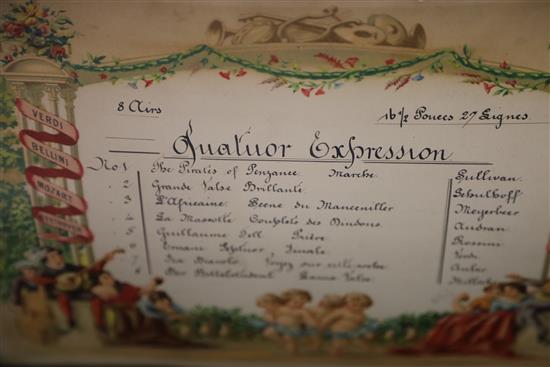 8 Airs
16 1/2 Pouces 27 Lignes
Quatuor Expression
VERDI
BELLINI
MOZART
No. 1 The Pirates of Penzance Marche Sullivan
. 2 Grande Valse Brillante Schulhoff
. 3 L'Africaine Scene du Mancenillier Meyerbeer
. 4 La Mascotte Couplets des Dindons Audran
. 5 Guillaume Tell Prière Rossini
. 6 Ernani Septuor Finale Verdi
. 7 Fra Diavolo Voyez sur cette roche Auber
. 8 Der Bettelstudent Valse